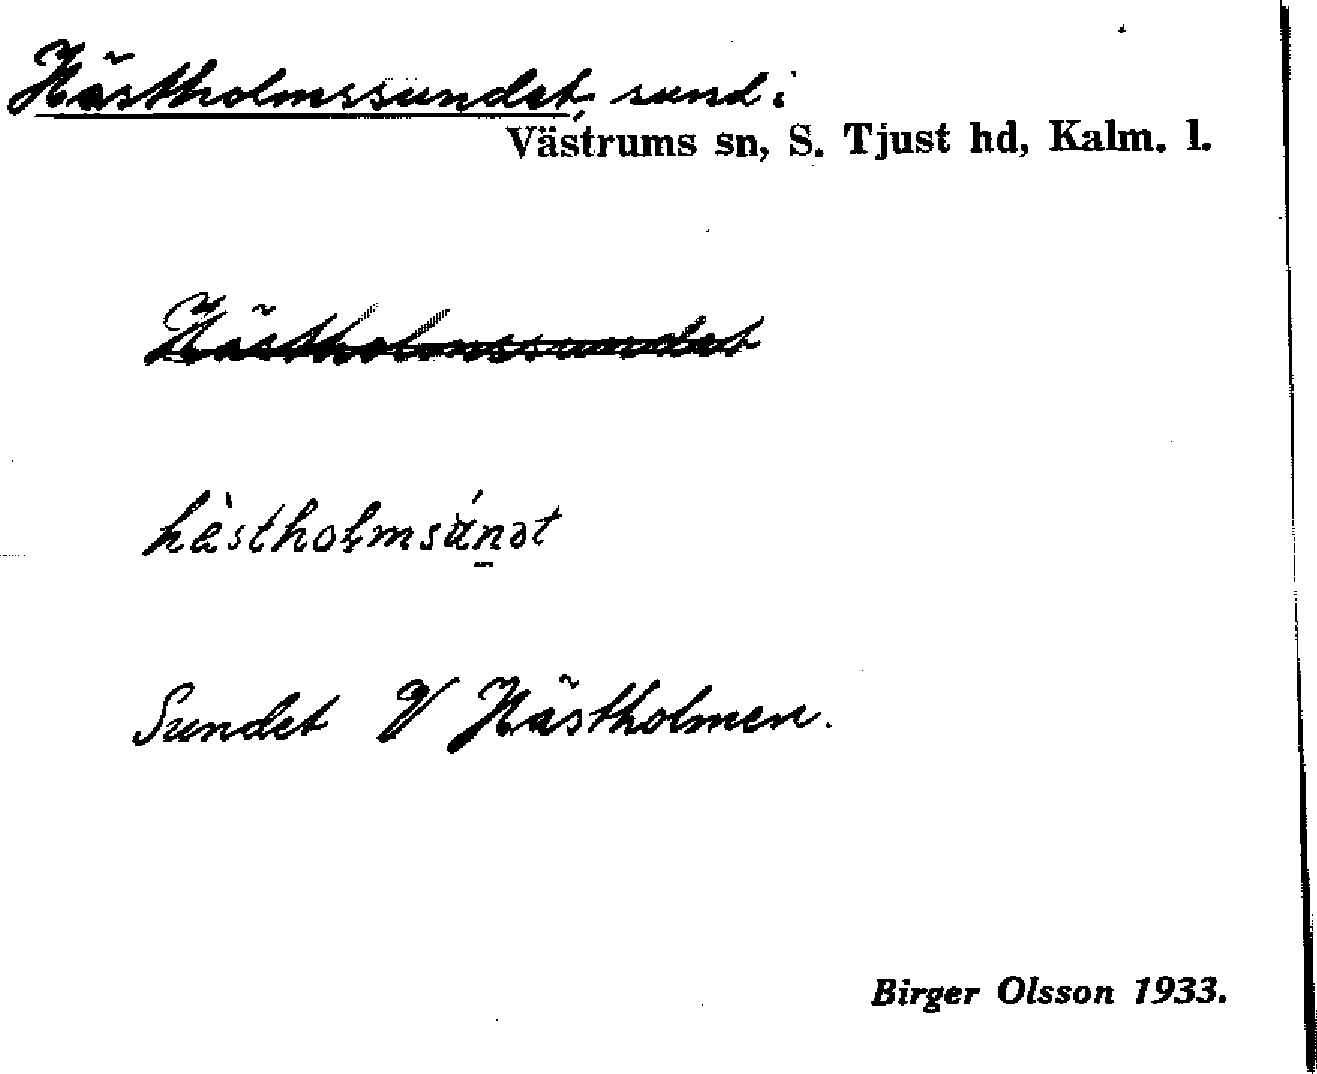 Hästholmssundet, sund i
Västrums sn, S. Tjust hd, Kalm. l.
Hästholmssundet
hästholmsúnət
Sundet V Hästholmen.
Birger Olsson 1933.